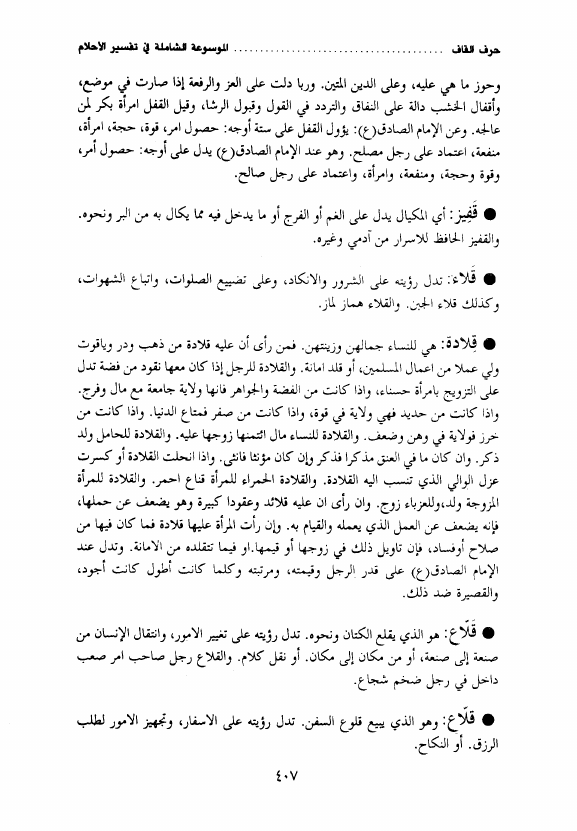 حرف القاف ........................................ الموسوعة الشاملة في تفسير الأحلام
وحوز ما هي عليه، وعلى الدين المتين. وربا دلت على العز والرفعة إذا صارت في موضع،
وأقفال الخشب دالة على النفاق والتردد في القول وقبول الرشا، وقيل القفل امرأة بكر لمن
عالجه. وعن الإمام الصادق(ع): يؤول القفل على ستة أوجه: حصول امر، قوة، حجة، امرأة،
منفعة، اعتماد على رجل مصلح. وهو عند الإمام الصادق(ع) يدل على أوجه: حصول أمر،
وقوة وحجة، ومنفعة، وامرأة، واعتماد على رجل صالح.
● قَفِيز: أي المكيال يدل على الغم أو الفرج أو ما يدخل فيه مما يكال به من البر ونحوه.
والقفيز الحافظ للاسرار من آدمي وغيره.
● قلاء: تدل رؤيته على الشرور والانكاد، وعلى تضييع الصلوات، واتباع الشهوات،
وكذلك قلاء الجبن. والقلاء هماز لماز.
● قِلادة: هي للنساء جمالهن وزينتهن. فمن رأى أن عليه قلادة من ذهب ودر وياقوت
ولي عملا من اعمال المسلمين، أو قلد امانة. والقلادة للرجل إذا كان معها نقود من فضة تدل
على التزويج بامرأة حسناء، واذا كانت من الفضة والجواهر فانها ولاية جامعة مع مال وفرج.
واذا كانت من حديد فهي ولاية في قوة، واذا كانت من صفر فمتاع الدنيا. واذا كانت من
خرز فولاية في وهن وضعف. والقلادة للنساء مال ائتمنها زوجها عليه. والقلادة للحامل ولد
ذكر. وان كان ما في العنق مذكرا فذكر وإن كان مؤنثا فانثى. واذا انحلت القلادة أو كسرت
عزل الوالي الذي تنسب اليه القلادة. والقلادة الحمراء للمرأة قناع احمر. والقلادة للمرأة
المزوجة ولد،وللعزباء زوج. وان رأى ان عليه قلائد وعقودا كبيرة وهو يضعف عن حملها،
فإنه يضعف عن العمل الذي يعمله والقيام به. وإن رأت المرأة عليها قلادة فما كان فيها من
صلاح أوفساد، فإن تاويل ذلك في زوجها أو قيمها.او فيما تتقلده من الامانة. وتدل عند
الإمام الصادق(ع) على قدر الرجل وقيمته، ومرتبته وكلما كانت أطول كانت أجود،
والقصيرة ضد ذلك.
● قَلّاع: هو الذي يقلع الكتان ونحوه. تدل رؤيته على تغيير الامور، وانتقال الإنسان من
صنعة إلى صنعة، أو من مكان إلى مكان. أو نقل كلام. والقلاع رجل صاحب امر صعب
داخل في رجل ضخم شجاع.
● قلّاع: وهو الذي يبيع قلوع السفن. تدل رؤيته على الاسفار، وتجهيز الامور لطلب
الرزق. أو النكاح.
٤٠٧